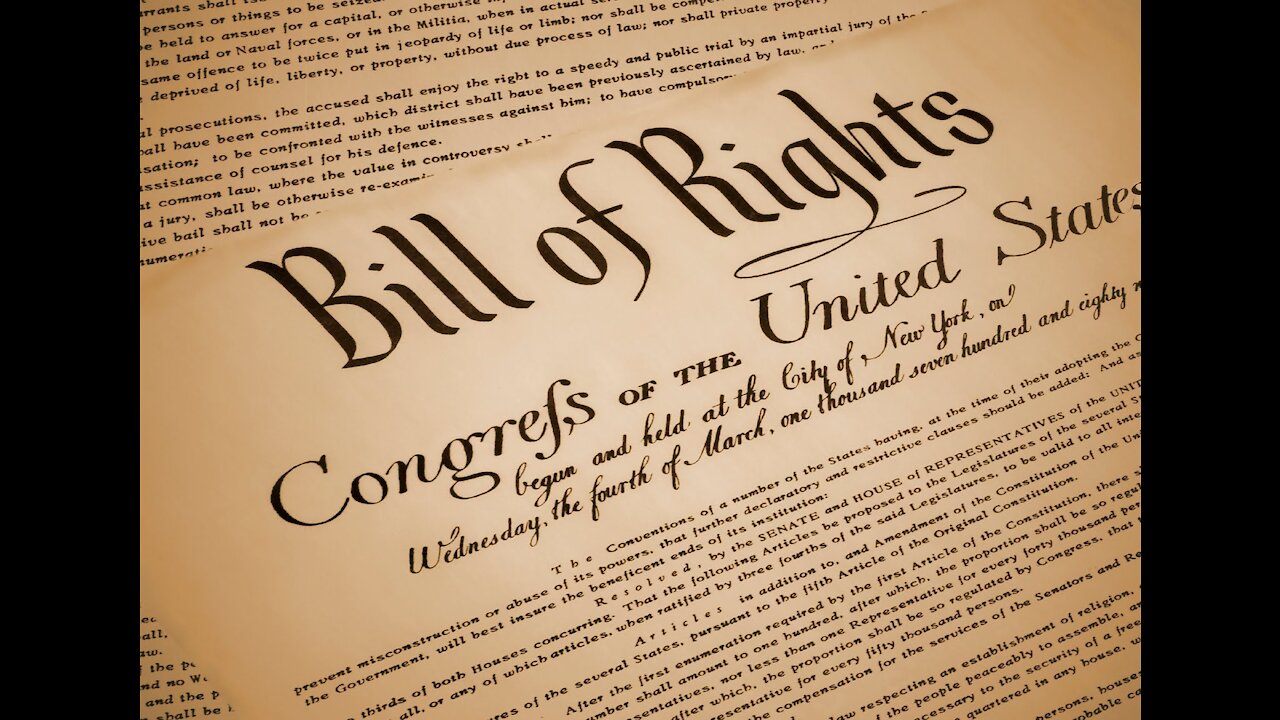 rrants shall
persons or things to be seized
be held to answer for a capital, or otherwise
the land or Naval forces, or in the Militia, when in actual
same offence to be twice put in jeopardy of life or limb; nor shall be
deprived of life, liberty, or property, without due process of law; nor shall private property
al prosecutions, the accused shall enjoy the right to a speedy and public trial by an impartial jury of the
hall have been committed, which district shall have been previously ascertained by law,
sation; to be confronted with the witnesses against him; to have compulsory
assistance of counsel for his defence.
at common law, where the value in controversy
a jury, shall be otherwise
ive bail shall not be
Bill of Rights
Congreſs OF THE United States
begun and held at the City of New York, on
Wednesday, the fourth of March, one thousand seven hundred and eighty
The Conventions of a number of the States having, at the time of their adopting the
prevent misconstruction or abuse of its powers, that further declaratory and restrictive clauses should be added: And as
the Government, will best insure the beneficent ends of its institution:
Resolved, by the SENATE and HOUSE of REPRESENTATIVES of the
thirds of both Houses concurring. That the following Articles be proposed to the Legislatures of the several
all, or any of which articles, when ratified by three fourths of the said Legislatures, to be valid to all
Articles in addition to, and Amendment of the Constitution of the
res of the several States, pursuant to the fifth Article of the Original Constitution.
After the first enumeration required by the first Article of the Constitution, there
number shall amount to one hundred, after which, the proportion shall be so
entatives, nor less than one Representative for every forty thousand
after which, the proportion shall be so regulated by Congress, that
presentative for every fifty thousand persons.
the compensation for the services of the Senators and
law respecting an establishment of religion,
of the people peaceably to assemble,
necessary to the security of a free
quartered in any house,
persons, houses,
probable
all,
aw.
of the
and no
and the
shall be